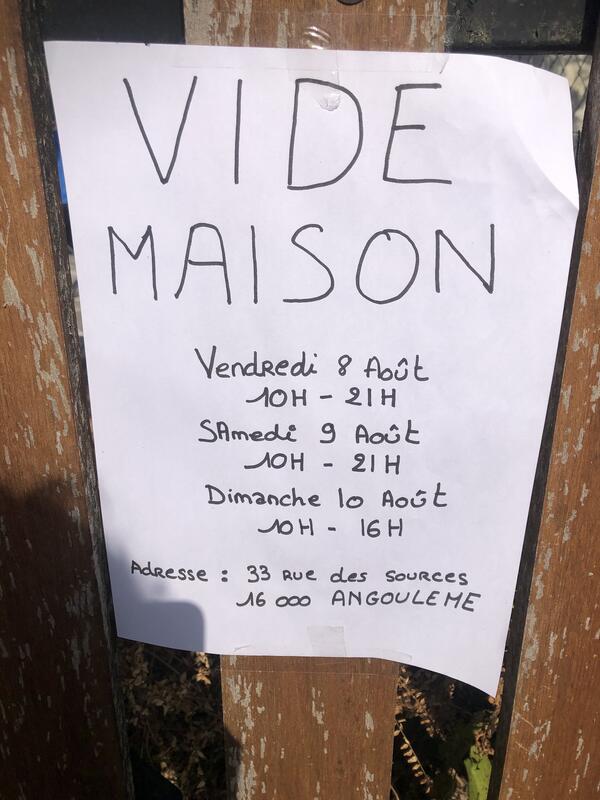 VIDE
MAISON
Vendredi 8 Août
10H - 21H
SAmedi 9 Août
10H - 21H
Dimanche 10 Août
10H - 16H
Adresse : 33 rue des sources
16 000 ANGOULEME